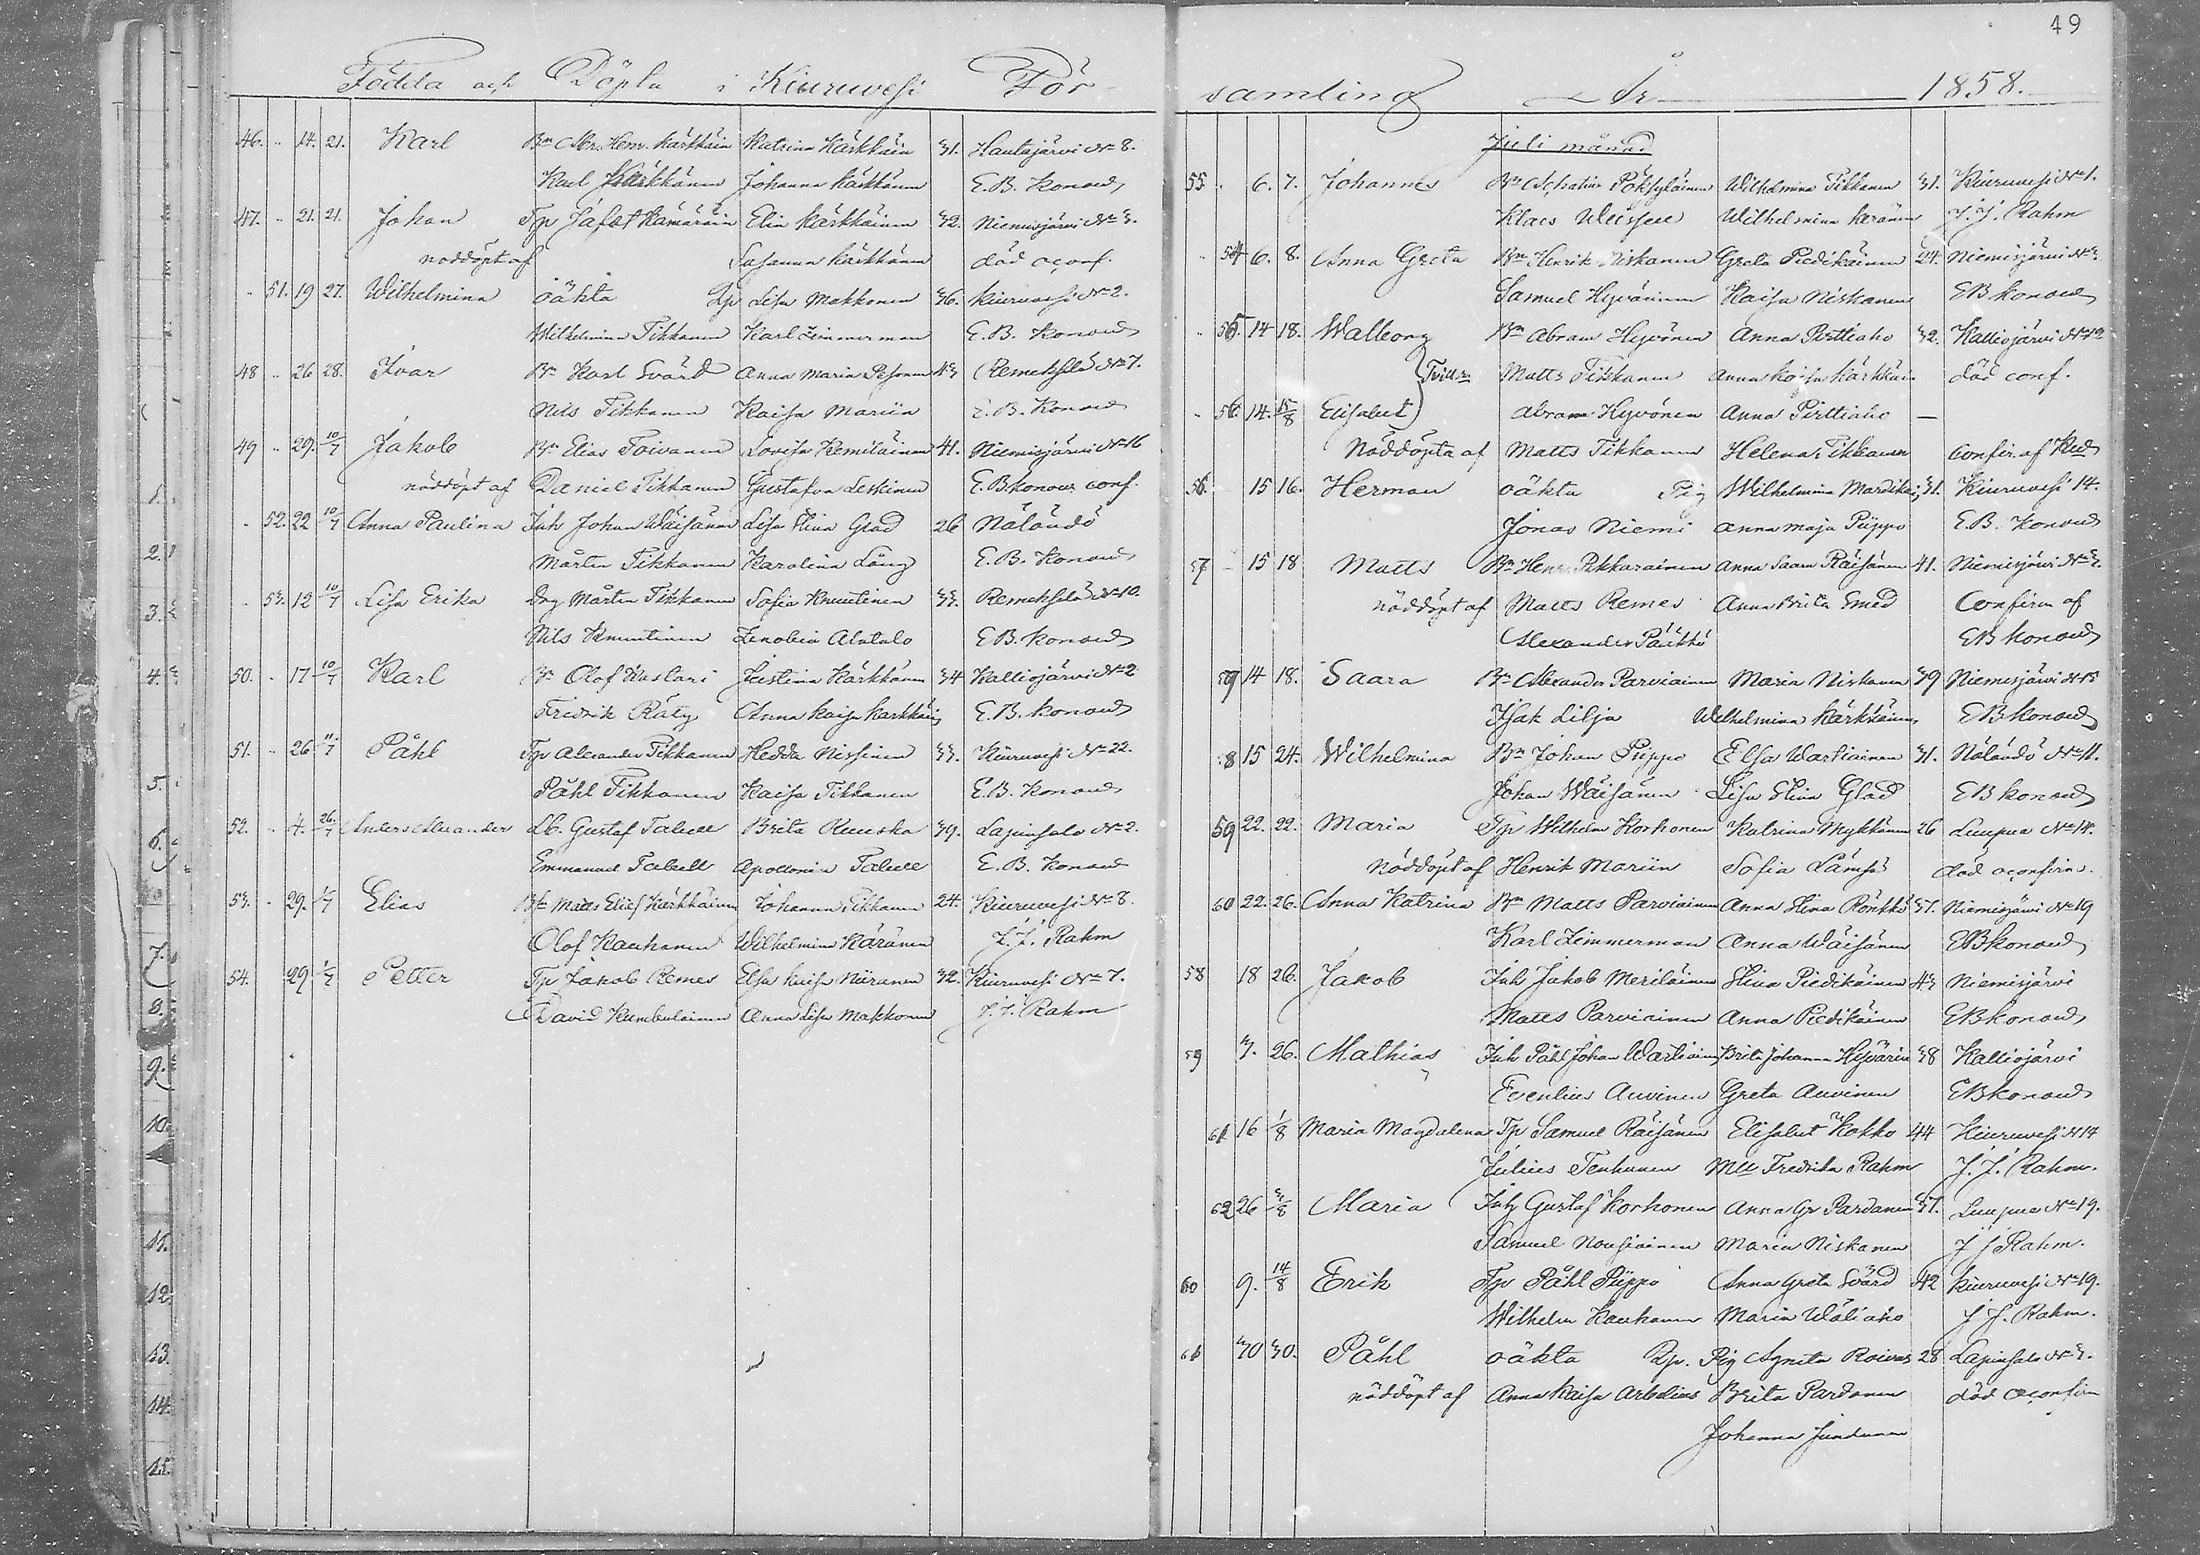 49
Födda och Döpta i Kiuruwesi För-
samling År 1858.
46. .. 14. 21. Karl Bn Abr. Henr. Kärkkäin Katrina Kärkkäin 31. Hautajärvi No 8.
Karl Kärkkänen Johanna Kärkkänen E.B. Konow
47. .. 21. 21. Johan Tp Jafet Kämäräin Elin Kärkkäinen 32. Niemisjärvi No 3.
nöddöpt af Susanna Kärkkänen död oconf.
.. 51. 19 27. Wilhelmina oäkta Lp Lisa Makkonen 36. Kiuruvesi No 2.
Wilhelmina Tikkanen Karl Zimmerman E.B. Konow
48 .. 26 28. Ivar Bn Karl Svärd Anna Maria Pesonen 43 Remeksela No 7.
Nils Tikkanen Kaisa Mariin E.B. Konow
49 .. 29. 10/7 Jakob Bn Elias Toivanen Lovisa Remiläinen 41. Niemisjärvi No 16
nöddöpt af Daniel Tikkanen Gustafva Leskinen E.B. Konow conf.
.. 52. 22 10/7 Anna Paulina Inh Johan Wäisänen Lisa Stina Glad 26 Nälöndö
Mårten Tikkanen Karolina Lång E.B. Konow
.. 53. 12 10/7 Lisa Erika Drg Mårten Tikkanen Sofia Knuutinen 33. Remeksela No 10.
Nils Knuutinen Zenobia Alatalo E.B. Konow
50. .. 17 10/7 Karl Bn Olof Kaslari Kristina Kärkkänen 34 Kalliojärvi No 2
Fredrik Räty Anna Kaisa Kärkkäin E.B. Konow
51. .. 26 11/7 Påhl Tp Alexander Tikkanen Hedda Nissinen 33. Kiuruvesi No 22.
Påhl Tikkanen Kaisa Tikkanen E.B. Konow
52. .. 4. 26/7 Anders Alexander Lb. Gustaf Tabell Brita Ruuska 39. Lapinsalo No 2.
Emmanuel Tabell Apollonia Tabell E.B. Konow
53. .. 29. 1/7 Elias Bn Matts Elias Kärkkäinen Johanna Tikkanen 24. Kiuruvesi No 8.
Olof Kauhanen Wilhelmina Käränen J.J. Rahm
54. 29 1/7 Petter Tp Jakob Remes Elsa Kaisa Niiranen 32. Kiuruvesi No 7.
David Kumbulainen Anna Lisa Makkonen J.J. Rahm
Juli månad
55. 6. 7. Johannes Wilhelmina Tikkanen 31. Kiuruvesi No 1.
Klaes Weissell Wilhelmina Keränen J.J. Rahm
.. 54 6. 8. Anna Greta Bn Henrik Niskanen Greta Piedikäinen 24. Niemisjärvi No 3.
Samuel Hyvärinen Kaisa Niskanen E.B. Konow
.. 55. 14 18. Walborg Bn Abram Hyvönen Anna Pirttiaho 32. Kalliojärvi No 12
Tvill: Matts Tikkanen Anna Kaisa Kärkkäin död conf.
.. 56. 14. 15/8 Elisabet Abram Hyvönen Anna Pirttiaho —
Nöddöpta af Matts Tikkanen Helena Tikkanen
56. 15 16. Herman oäkta Pig Wilhelmina Mardikain 31. Kiuruvesi 14.
Jonas Niemi Anna Maja Piippo E.B. Konow
57 – 15 18 Matts Bn Henr. Pekkarainen Anna Saara Räisänen 41. Niemisjärvi No 3.
nöddöpt af Matts Remes Anna Brita Smed Confirm af
Alexander Pääkkö EB Konow
59 14 18. Saara Bn Alexander Parviainen Maria Niskanen 39 Niemisjärvi N 15
Isak Lilja Wilhelmina Kärkkäinen EB Konow
58 15 24. Wilhelmina Bn Johan Piippo Elsa Wartiainen 31. Nälöndö No 11.
Johan Wäisänen Lisa Stina Glad EB Konow
59 22. 22. Maria Tp Wilhelm Korhonen Katrina Mykkänen 26 Luupua No 14.
Nöddöpt af Henrik Mariin Sofia Lämsä död oconfirm.
60 22. 26. Anna Katrina Bn Matts Parviainen Anna Stina Rönkkö 37. Niemisjärvi No 19
Karl Zimmerman Anna Wäisänen EB Konow
58 18 26. Jakob Inh Jakob Meriläinen Stina Piedikäinen 43 Niemisjärvi
Matts Parviainen Anna Piedikäinen EB Konow
59 3. 26. Mathias Inh Påhl Johan Wartiainen Brita Johanna Hyvärin 38 Kalliojärvi
Evenlius Auvinen Greta Auvinen EB Konow
61 16 1/8 Maria Magdalena Tp Samuel Räisänen Elisabet Kokko 44 Kiuruvesi N 14
Julius Tenhunen Mll Fredrika Rahm J.J. Rahm.
62 26 3/8 Maria Inh Gustaf Korhonen Anna Gr Pardanen 37. Luupua No 19.
Samuel Nousiainen Maria Niskanen J J Rahm.
60 9. 14/8 Erik Tp Påhl Piippo Anna Greta Svärd 42 Kiuruvesi No 19.
Wilhelm Kauhanen Maria Wäliaho J.J. Rahm.
61 30 30. Påhl oäkta Lp. Pig Agneta Roivas 28 Lapinsalo No 3.
nöddöpt af Anna Kaisa Arbelius Brita Pardanen död oconfirm
Johanna Jundunen
1.
2.
3.
4.
5.
6.
7.
8.
9.
10.
11.
12.
13.
14.
15.